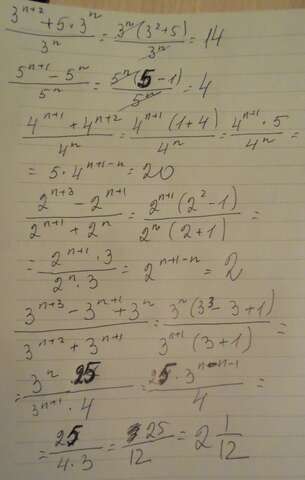 (3^{n+2} + 5·3^n)/3^n = (3^n(3^2+5))/3^n = 14
(5^{n+1} - 5^n)/5^n = (5^n(5-1))/5^n = 4
(4^{n+1} + 4^{n+2})/4^n = (4^{n+1}(1+4))/4^n = (4^{n+1}·5)/4^n =
= 5·4^{n+1-n} = 20
(2^{n+3} - 2^{n+1})/(2^{n+1} + 2^n) = (2^{n+1}(2^2-1))/(2^n(2+1)) =
= (2^{n+1}·3)/(2^n·3) = 2^{n+1-n} = 2
(3^{n+3} - 3^{n+1} + 3^n)/(3^{n+2} + 3^{n+1}) = (3^n(3^3-3+1))/(3^{n+1}(3+1)) =
= (3^n 25)/(3^{n+1}·4) = (25·3^{n-n-1})/4 =
= 25/(4·3) = 25/12 = 2 1/12